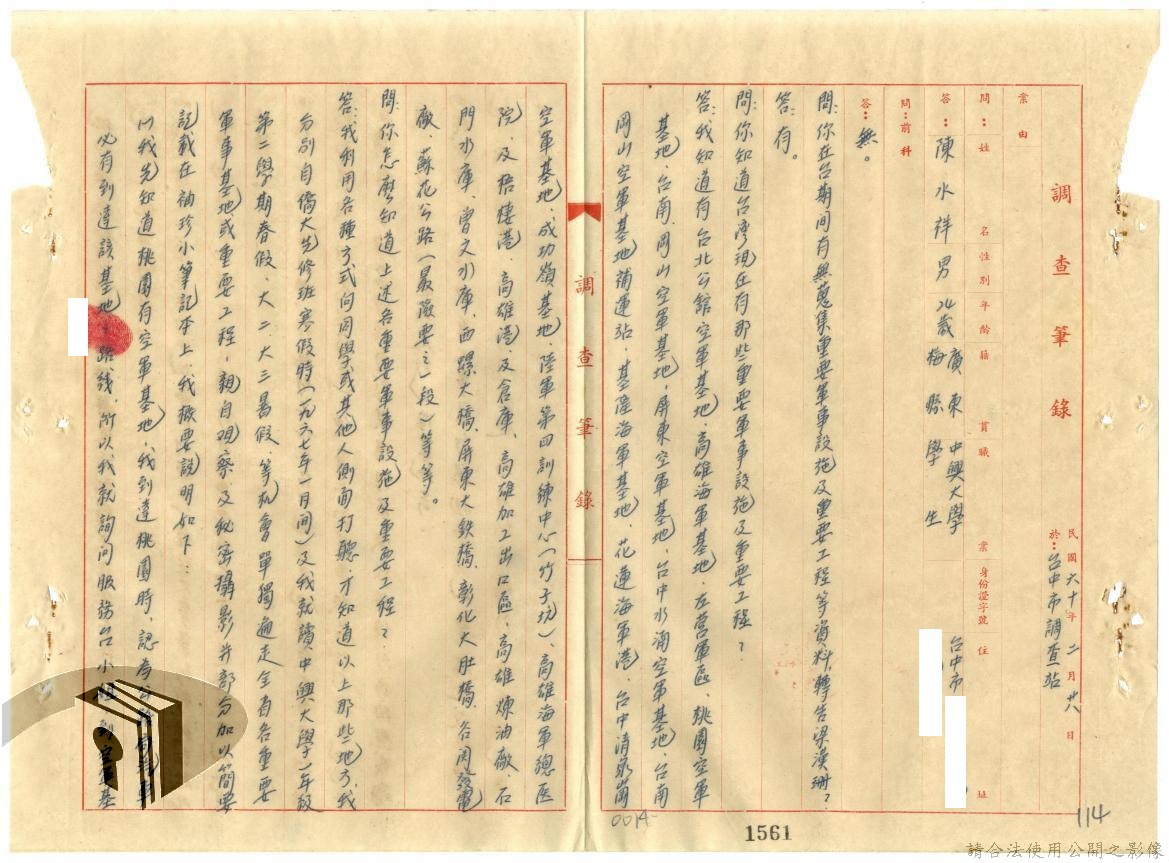 調查筆錄
民國六十年二月廿八日
於：台中市調查站
案由
問：姓名性別年齡籍貫職業身份證字號住址
答：陳水祥 男 24歲 廣東梅縣 中興大學學生 台中市
問：前科
答：無。
問：你在台期間有無蒐集重要軍事設施及重要工程等資料轉告梁漢珊？
答：有。
問：你知道台灣現在有那些重要軍事設施及重要工程？
答：我知道有台北公館空軍基地、高雄海軍基地、左營軍區、桃園空軍
基地、台南、岡山空軍基地、屏東空軍基地、台中水湳空軍基地、台南
岡山空軍基地補運站、基隆海軍基地、花蓮海軍港、台中清泉崗
調查筆錄
空軍基地、成功嶺基地、陸軍第四訓練中心（竹子坑）、高雄海軍總医
院、及梧棲港、高雄港、及倉庫、高雄加工出口區、高雄煉油廠、石
門水庫、曾文水庫、西螺大橋、屏東大鉄橋、彰化大肚橋、各周發電
廠、蘇花公路（最險要之一段）等等。
問：你怎麽知道上述各重要軍事設施及重要工程？
答：我利用各種方式向同學或其他人側面打聽才知道以上那些地方、我
分別自僑大先修班寒假時（一九六七年一月間）及我就讀中興大學一年級
第二學期春假、大二、大三暑假、等机會單獨遍走全省各重要
軍事基地或重要工程，親自現察、及秘密攝影并部分加以簡要
記載在袖珍小筆記本上，我概要說明如下：
以我先知道桃園有空軍基地，我到達桃園時，認為公路局汽車
必有到達該基地之路线，所以我就詢问服務台小姐到空軍基
114
0014
1561
請合法使用公開之影像